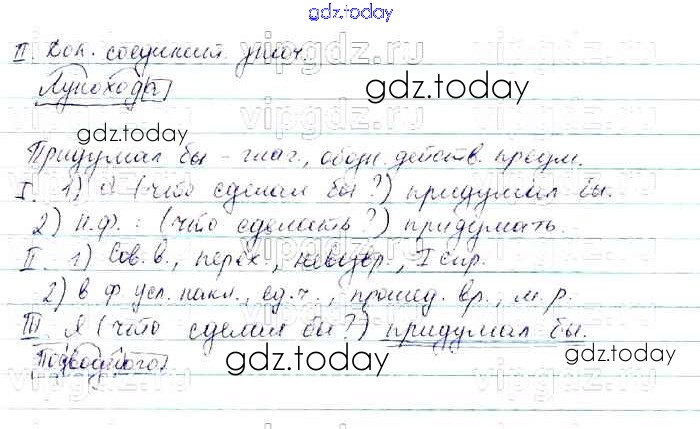 gdz.today
II. Доп. соединит. união.
Лунохода
gdz.today
gdz.today
Придумал бы – глаг., обозн. действ. предм.
I. 1) Я (что сделал бы?) придумал бы.
2) Н.ф.: (что сделать?) придумать.
II. 1) Сов.в., перех., невозвр., I спр.
2) в ф. усл. накл., ед.ч., прошед. вр., м.р.
III Я (что сделал бы?) придумал бы.
Подводного
gdz.today
gdz.today
vipgdz.ru